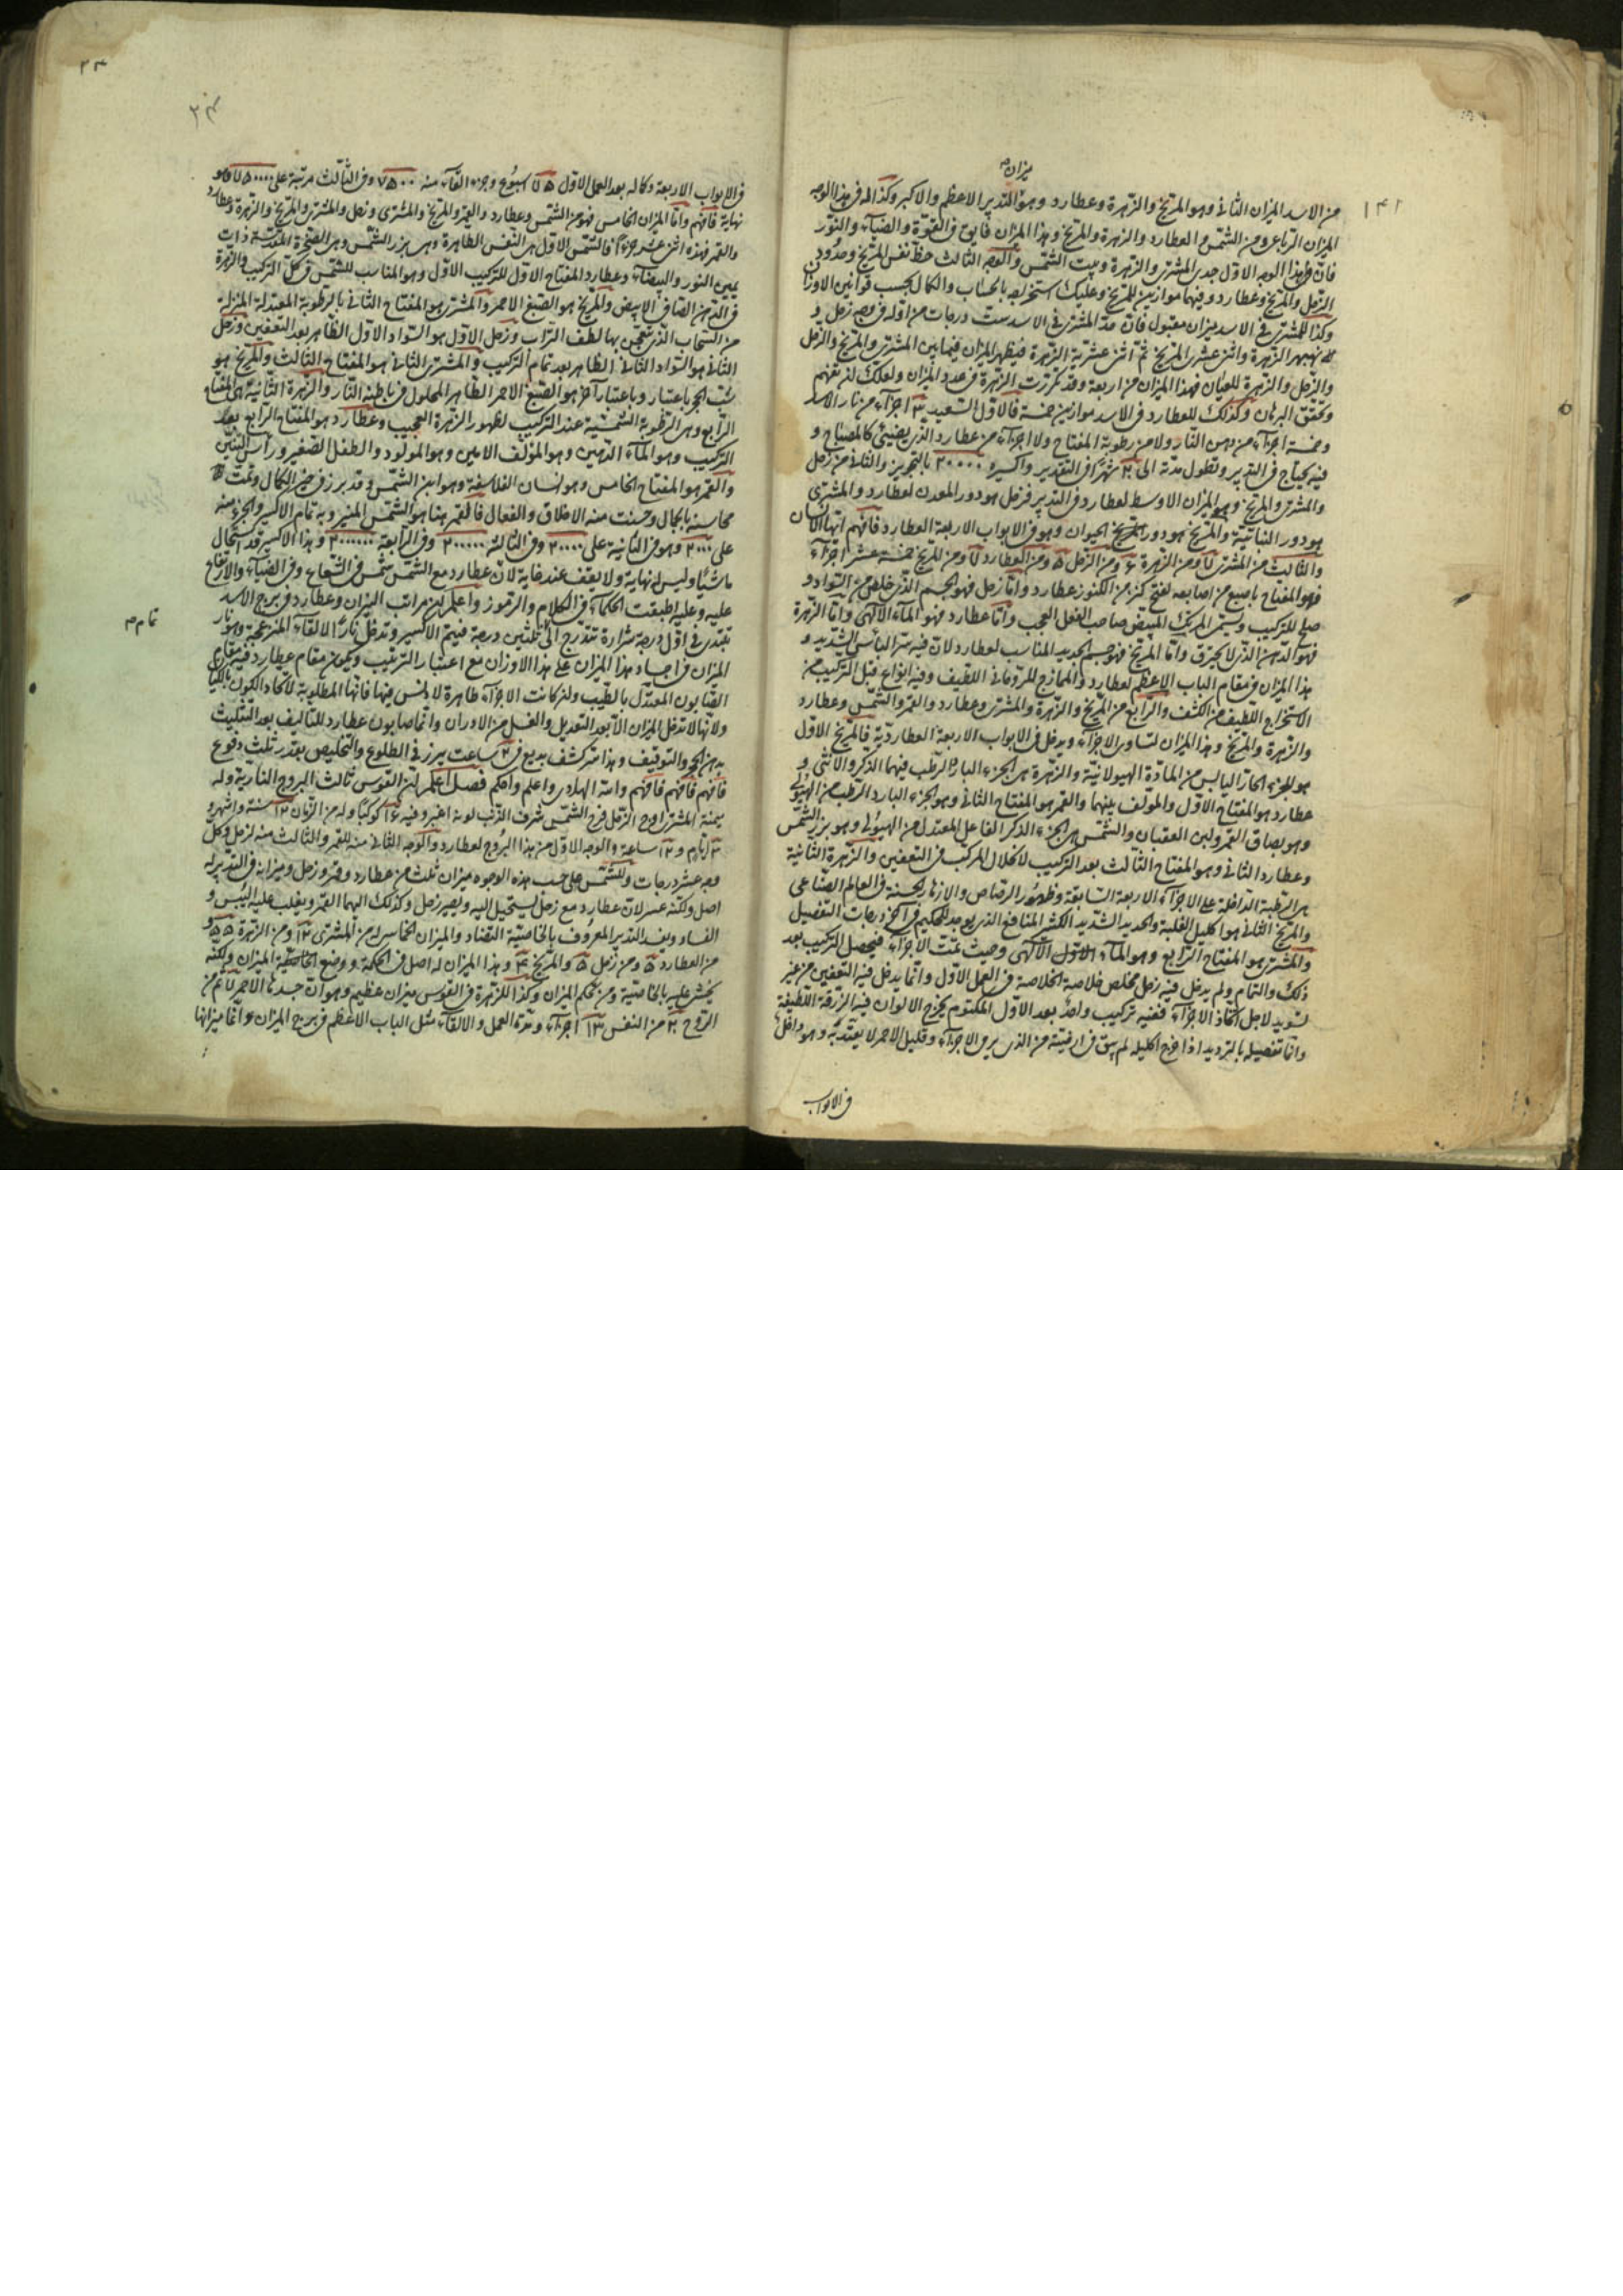 ميزان
١٤١
من الاسد الميزان الثانى وهو المريخ والزهرة وعطارد وهو التدبير الاعظم والاكبر وكذا له فى هذا الوجه
الميزان الرباعى ومن الشمس العطارد والزهرة والمريخ وهذا الميزان فايق فى القوة والضياء والنور
فان لهذا الوجه الاول جدى المشترى والزهرة وبيت الشمس والوجه الثالث حظ نفس المريخ وحدود من
الزحل والمريخ وعطارد وفيهما موازين للمريخ وعليك استخراجه بالحساب والكمال بحسب قوانين الاوزان
وكذا للمشترى فى الاسد ميزان مقبول فان حد المشترى فى الاسد ست درجات من اوله فى وجه زحل و
الزهرة واثنى عشرى المريخ ثم اثنى عشرية الزهرة فيظهر الميزان فيما بين المشترى والمريخ والزحل
والزحل والزهرة للعيان فهذا الميزان من اربعة وقد تكررت الزهرة فى عدد الميزان ولعلك ان تفهم
وتحقق البرهان وكذلك للعطارد فى الاسد موازين خمسة فالاول السعيد ٣ اجزاء من نار الاسد
وخمسة اجزاء من دهن النار ولا من رطوبة المفتاح ولا اجزاء من عطارد الذى يضيئ كالمصباح و
فيه يحتاج فى التدبير وتطول مدته الى ٢٠ شهرا فى التقدير واكسيره ٢٠٠٠٠ بالتحرير والثانى من زحل
والمشترى والمريخ وهو الميزان الاوسط لعطارد فى التدبير فزحل هو دور المعدن لعطارد والمشترى
هو دور النباتية والمريخ هو دور المريخ الحيوان وهو فى الابواب الاربعة العطارد فافهم ايها الانسان
والثالث من المشترى ومن الزهرة ۶ ومن الزحل ۵ ومن العطارد ومن المريخ خمسة عشر اجزاء
فهو المفتاح باصبع من اصابعه لفتح كنز من الكنوز عطارد واما زحل فهو الجسم الذى خلص من السواد و
صلح للتركيب ويسمى المرتك المبيض صاحب الفعل العجيب واما عطارد فهو الماء الالهى واما الزهرة
فهو الدهن الذى لا يحترق واما المريخ فهو جسم الحديد المناسب لعطارد لان فيه سر البأس الشديد و
هذا الميزان فى مقام الباب الاعظم لعطارد والممازج للروحانى اللطيف وفيه انواع قبل التركيب من
الاستخراج اللطيف من الكشف والرابع من المريخ والزهرة والمشترى وعطارد والقمر والشمس وعطارد
والزهرة والمريخ وهذا الميزان لتساوى الاجزاء ويدخل فى الابواب الاربعة العطاردية فالمريخ الاول
هو الجزء الحار اليابس من المادة الهيولانية والزهرة هى الجزء البارد الرطب فيهما الذكر والانثى و
عطارد هو المفتاح الاول والمؤلف بينهما والقمر هو المفتاح الثانى وهو الجزء البارد الرطب من الهيولى
وهو بصاق القمر ولبن العقبان والشمس هى الجزء الذكر الفاعل المعتدل من الهيولى وهو بزر الشمس
وعطارد الثانى وهو المفتاح الثالث بعد التركيب لانحلال المركب فى التعفين والزهرة الثانية
هى الرطبة الداخلة على الاجزاء الاربعة السابقة وظهور الرصاص والازهار الحسنة فى العالم الصناعى
والمريخ الثانى هو اكليل الغلبة والحديد الشديد الكثير المنافع الذى يوجد للحكيم فى آخر درجات التفصيل
والمشترى هو المفتاح الرابع وهو الماء الاول الالهى وحيث تمت الاجزاء فيحصل التركيب بعد
ذلك والتمام ولم يدخل فيه زحل مخلص خلاصة الخلاصة فى العمل الاول وانما يدخل فيه التعفين من غير
تسويد لاجل اتحاد الاجزاء ففيه تركيب واحد بعد الاول المكتوم يخرج الالوان فيه الزرقة اللطيفة
واما تفصيله بالترديد اذا خرج اكليله لم يبق فى ارضيته من الذى يرى الاجزاء وقليل الاحمر لا يعتد به وهو داخل
فى الابواب
٣٤
٣٤
فى الابواب الاربعة وكماله بعد العمل الاول اسبوع وجزء القاء منه ٧٥٠٠ وفى الثالث مرتبة على ٧٥٠٠٠٠ وهو
نهاية فافهم واما الميزان الخامس فهو من الشمس وعطارد والقمر والمريخ والمشترى وزحل والمشترى والمريخ والزهرة وعطارد
والقمر فهذه اثنى عشر جزءا فالشمس الاول هى النفس الطاهرة وهى بزر الشمس وهى الصخرة المقدسة ذات
يمين النور والبيضاء وعطارد المفتاح الاول للتركيب الاول وهو المناسب للشمس فى كل التركيب والزهرة
فى الدهن الصافى الابيض والمريخ هو الصبغ الاحمر والمشترى هو المفتاح الثانى بالرطوبة المعتدلة المنزلة
من السحاب الذى تعجن بها لطف التراب وزحل الاول هو السواد الاول الظاهر بعد التعفين وزحل
الثانى هو السواد الثانى الظاهر بعد تمام التركيب والمشترى الثانى هو المفتاح الثالث والمريخ هو
شب الحجر باعتبار وباعتبار آخر هو الصبغ الاحمر الظاهر المحلول فى باطنه النار والزهرة الثانية هى المفتاح
الرابع وهى الرطوبة الشمسية عند التركيب لظهور الزهرة العجيب وعطارد هو المفتاح الرابع بعد
التركيب وهو الماء الذهبى وهو المؤلف الامين وهو المولود والطفل الصغير ورأس التنين
والقمر هو المفتاح الخامس وهو انسان الفلاسفة وهو ابن الشمس وقد برز فى حيز الكمال وتمت
محاسنه بالجمال وحسنت منه الاخلاق والفعال فالقمر هنا هو الشمس المنير وبه تمام الاكسير والجزء منه
على ٢٠٠٠ وهو فى الثانية على ٢٠٠٠٠ وفى الثالثة ٢٠٠٠٠٠ وفى الرابعة ٢٠٠٠٠٠٠ وهذا الاكسير قد استحال
ما شيئا وليس له نهاية ولا يقف عند غاية لان عطارد مع الشمس شمس فى الشعاع وفى الضياء والارتفاع
عليه وعليه اطبقت الحكماء فى الكلام والرموز واعلم ان مراتب الميزان وعطارد فى برج الاسد
تمام
تقتدر فى اول درجة شرارة تتدرج الى ثلثين درجة فيتم الاكسير وتدخل نارا لالقاء المنزعجة وهو نار
الميزان فى اجساد هذا الميزان على هذا الاوزان مع اعتبار الترتيب ويكون مقام عطارد فيه مقام
الصابون المعتدل بالطيب وان كانت الاجزاء طاهرة لا دنس فيها فانها المطلوبة لاتحاد الكون بالكيان
ولانها لا تدخل الميزان الا بعد التعديل والغسل من الادران وانما صابون عطارد للتأليف بعد التثليث
بدهن الحجر والتوقيف وهذا سر كشف بديع فى ساعت يبرز فى الطلوع والتخليص بعقد ثلث دفوع
فافهم فافهم فافهم والله الهادى واعلم واحكم فصل اعلم ان القوس ثالث البروج النارية وله
ميمنة المشترى اوج الزحل فرح الشمس شرف الذنب لونه اغبر وفيه كوكبا وله من الزمان ١٢ سنة واشهر و
ايام و ١٢ ساعة والوجه الاول من هذا البروج لعطارد والوجه الثانى منه للقمر والثالث منه لزحل وكل
وجه عشر درجات وللشمس على حسب هذه الوجوه ميزان ثلث من عطارد وقمر وزحل وميزانه فى التدبير له
اصل ولكنه عسر لان عطارد مع زحل يستحيل اليه ويصير زحل وكذلك الهما القمر ويغلب عليه اليبس و
الفساد ويفسد التدبير المعروف بالخاصية التضاد والميزان الخامس له من المشترى ١٢ ومن الزهرة ۵۵ و
من العطارد ۵ ومن زحل ۵ والمريخ ۴ وهذا الميزان له اصل فى الحكمة ووضع الخاصية الميزان ولكنه
يخشى عليه بالخاصية ومن يحكم الميزان وكذا للزهرة فى القوس ميزان عظيم وهو ان جسدها الاحمر من
الروح ٢٠ من النفس ١٣ اجزاء ومدة العمل والالقاء مثل الباب الاعظم فى برج الميزان واما ميزانها